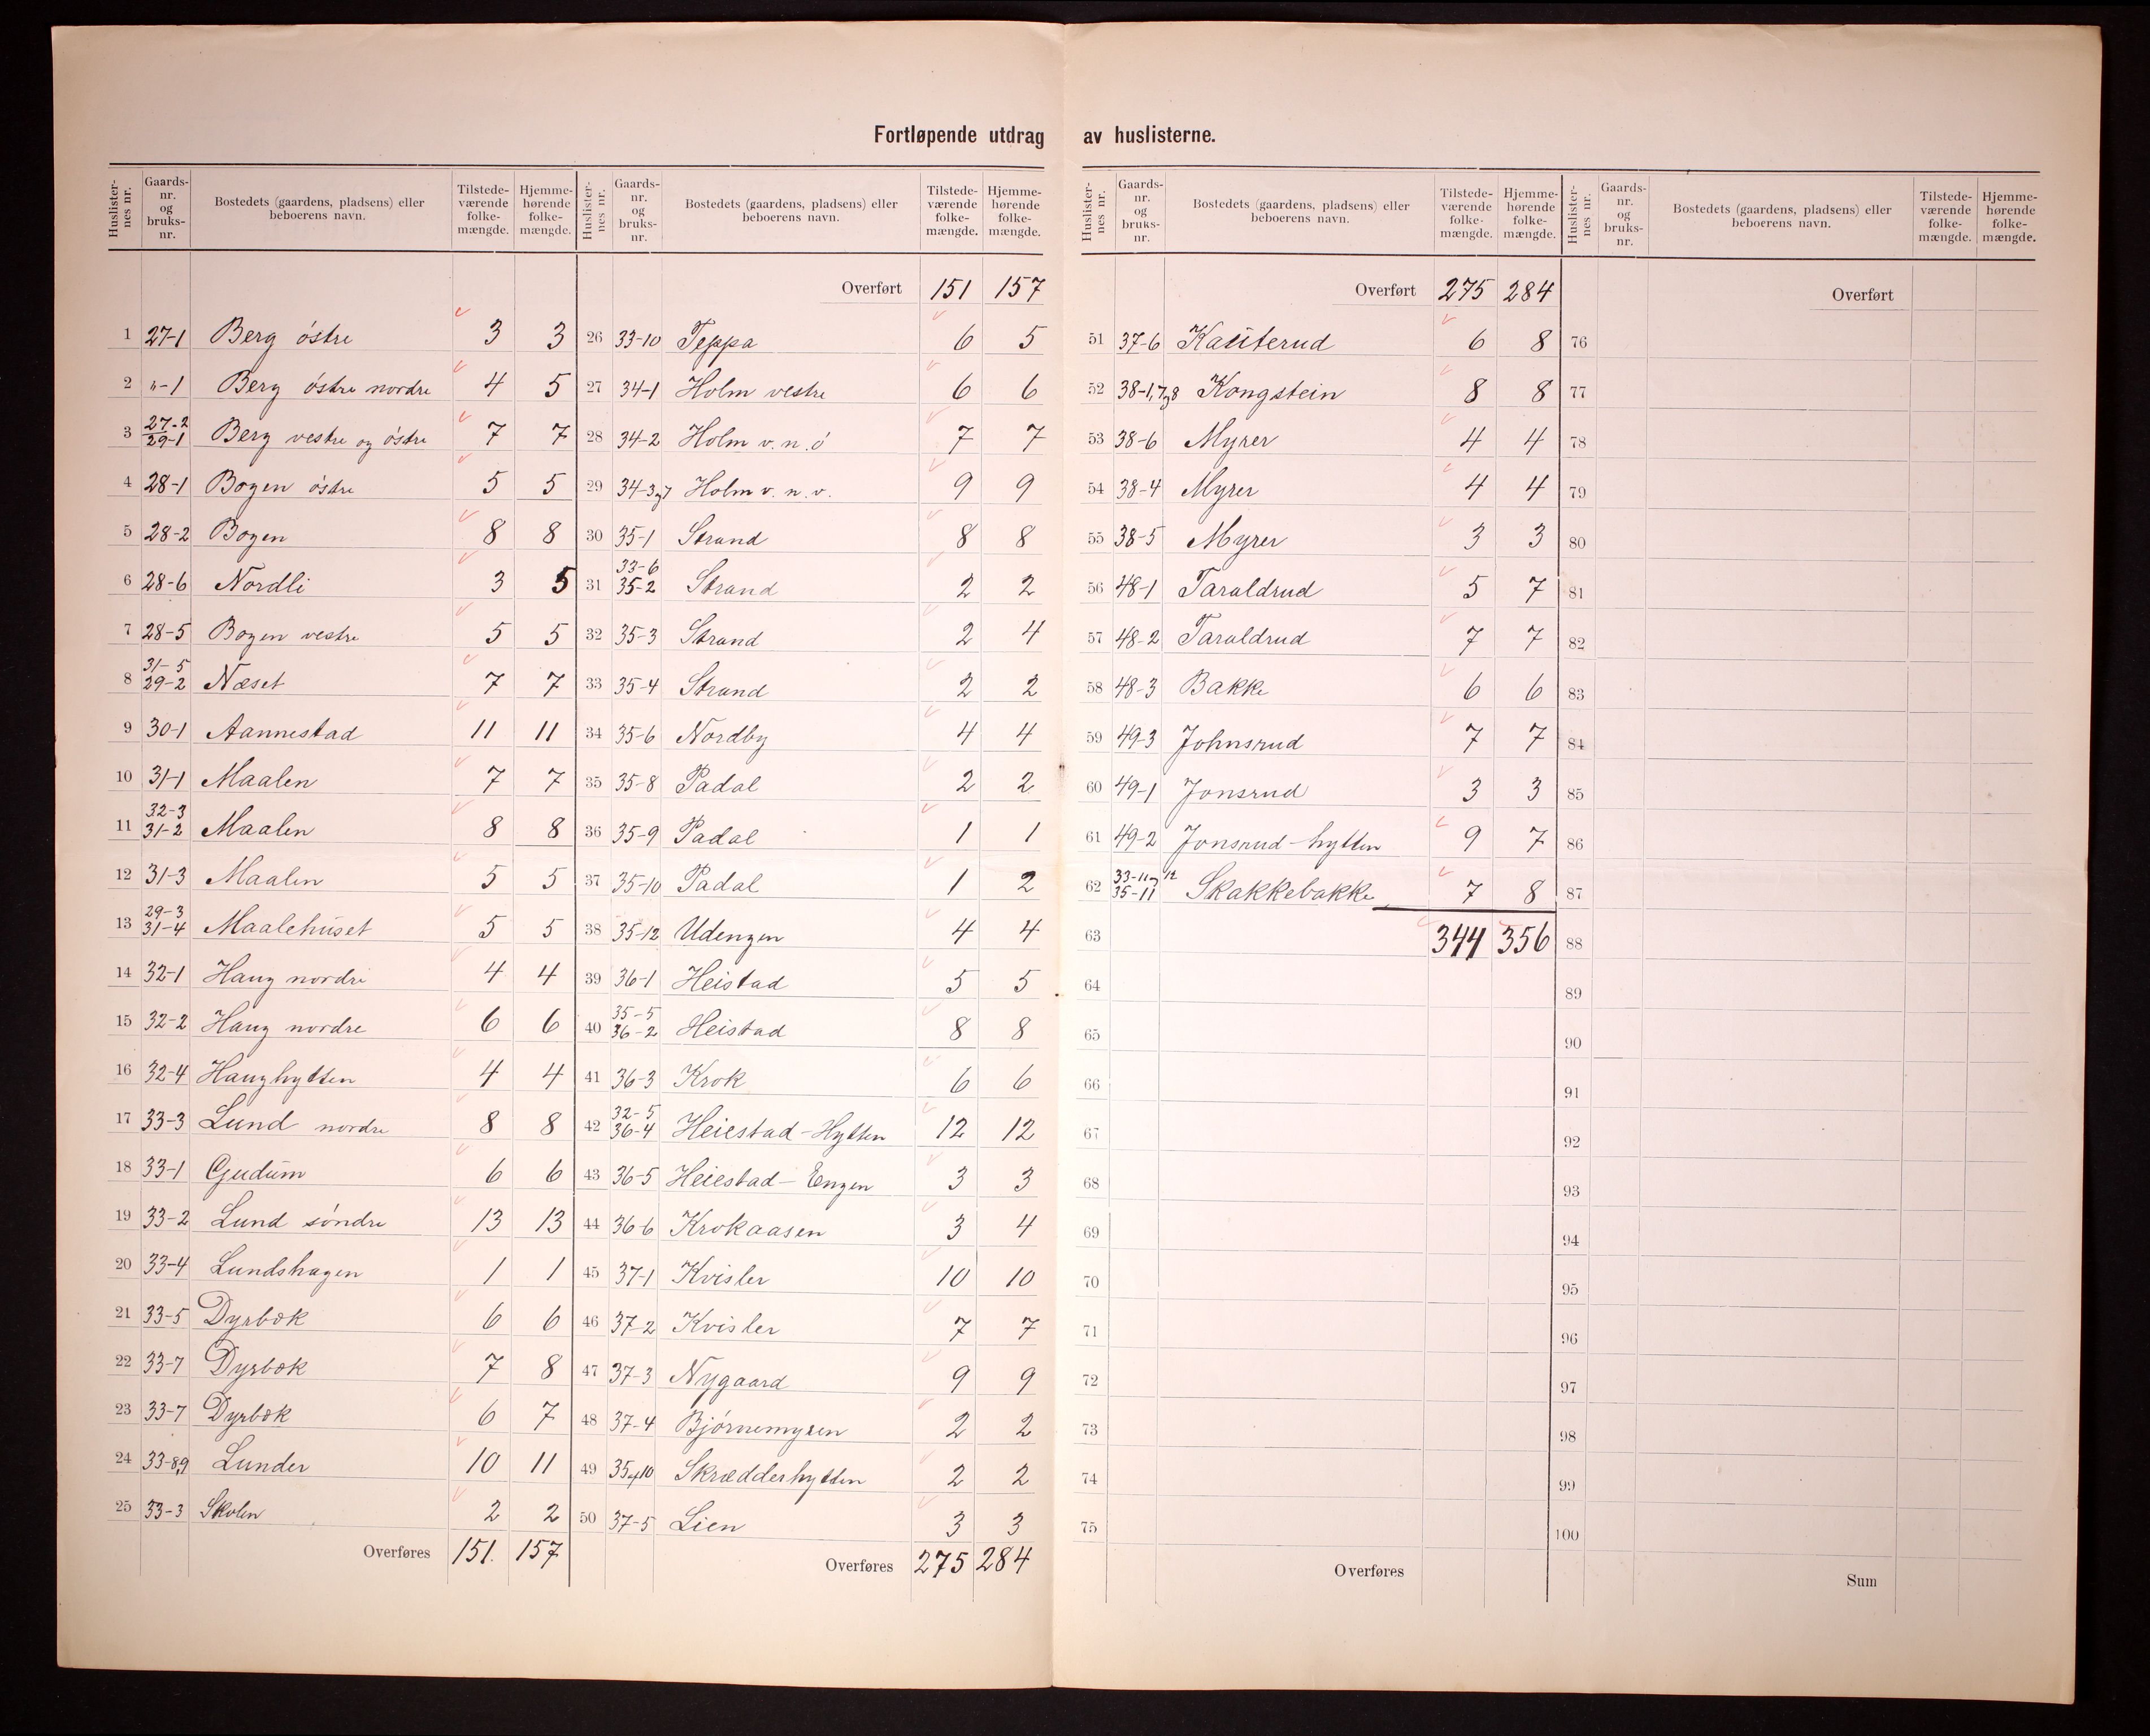 Fortløpende utdrag av huslisterne.
Huslisternes nr. Gaards-nr. og bruks-nr. Bostedets (gaardens, pladsens) eller beboerens navn. Tilstede-værende folke-mængde. Hjemme-hørende folke-mængde.
1 27-1 Berg østre 3 3
2 "-1 Berg østre nordre 4 5
3 27-2 29-1 Berg vestre og østre 7 7
4 28-1 Bogen østre 5 5
5 28-2 Bogen 8 8
6 28-6 Nordli 3 5
7 28-5 Bogen vestre 5 5
8 31-5 29-2 Næset 7 7
9 30-1 Aannestad 11 11
10 31-1 Maalen 7 7
11 32-3 31-2 Maalen 8 8
12 31-3 Maalen 5 5
13 29-3 31-4 Maalehuset 5 5
14 32-1 Haug nordre 4 4
15 32-2 Haug nordre 6 6
16 32-4 Haughytten 4 4
17 33-3 Lund nordre 8 8
18 33-1 Gudum 6 6
19 33-2 Lund søndre 13 13
20 33-4 Lundshagen 1 1
21 33-5 Dyrbæk 6 6
22 33-7 Dyrbæk 7 8
23 33-7 Dyrbæk 6 7
24 33-8,9 Lunder 10 11
25 33-3 Skolen 2 2
Overføres 151. 157
Huslisternes nr. Gaards-nr. og bruks-nr. Bostedets (gaardens, pladsens) eller beboerens navn. Tilstede-værende folke-mængde. Hjemme-hørende folke-mængde.
Overført 151 157
26 33-10 Teppa 6 5
27 34-1 Holm vestre 6 6
28 34-2 Holm v. n. ø 7 7
29 34-3 og 7 Holm v. n. v. 9 9
30 35-1 Strand 8 8
31 33-6 35-2 Strand 2 2
32 35-3 Strand 2 4
33 35-4 Strand 2 2
34 35-6 Nordby 4 4
35 35-8 Padal 2 2
36 35-9 Padal 1 1
37 35-10 Padal 1 2
38 35-12 Udengen 4 4
39 36-1 Heistad 5 5
40 35-5 36-2 Heistad 8 8
41 36-3 Krok 6 6
42 32-5 36-4 Heiestad-Hytten 12 12
43 36-5 Heiestad-Engen 3 3
44 36-6 Krokaasen 3 4
45 37-1 Kvisler 10 10
46 37-2 Kvisler 7 7
47 37-3 Nygaard 9 9
48 37-4 Bjørnemyren 2 2
49 Skrædderhytten 2 2
50 37-5 Lien 3 3
Overføres 275 284
Huslisternes nr. Gaards-nr. og bruks-nr. Bostedets (gaardens, pladsens) eller beboerens navn. Tilstede-værende folke-mængde. Hjemme-hørende folke-mængde.
Overført 275 284
51 37-6 Kauterud 6 8
52 38-1,7 og 8 Kongstein 8 8
53 38-6 Myrer 4 4
54 38-4 Myrer 4 4
55 38-5 Myrer 3 3
56 48-1 Taraldrud 5 7
57 48-2 Taraldrud 7 7
58 48-3 Bakke 6 6
59 49-3 Johnsrud 7 7
60 49-1 Jonsrud 3 3
61 49-2 Jonsrud-hytten 9 7
62 33-11 og 12 35-11 Skakkebakke 7 8
63 344 356
64
65
66
67
68
69
70
71
72
73
74
75
Overføres
Huslisternes nr. Gaards-nr. og bruks-nr. Bostedets (gaardens, pladsens) eller beboerens navn. Tilstede-værende folke-mængde. Hjemme-hørende folke-mængde.
Overført
76
77
78
79
80
81
82
83
84
85
86
87
88
89
90
91
92
93
94
95
96
97
98
99
100
Sum